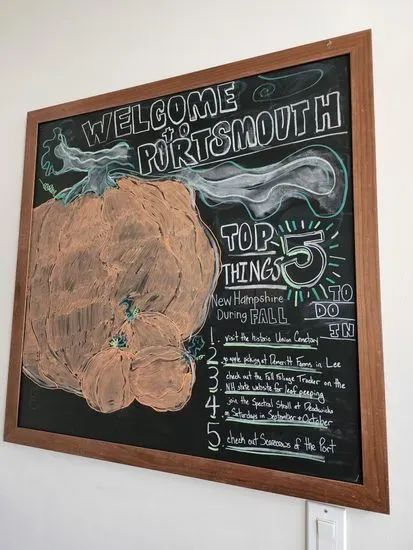 WELCOME
to
PORTSMOUTH
TOP 5
THINGS
TO
DO
IN
New Hampshire
During FALL
1. visit the historic Union Cemetery
2 go apple picking at Demeritt Farms in Lee
3 check out the Fall Foliage Tracker on the
NH state website for leaf peeping
4 join the Spectral Stroll at Deadwicks
on Saturdays in September + October
5 check out Scarecrows of the Port